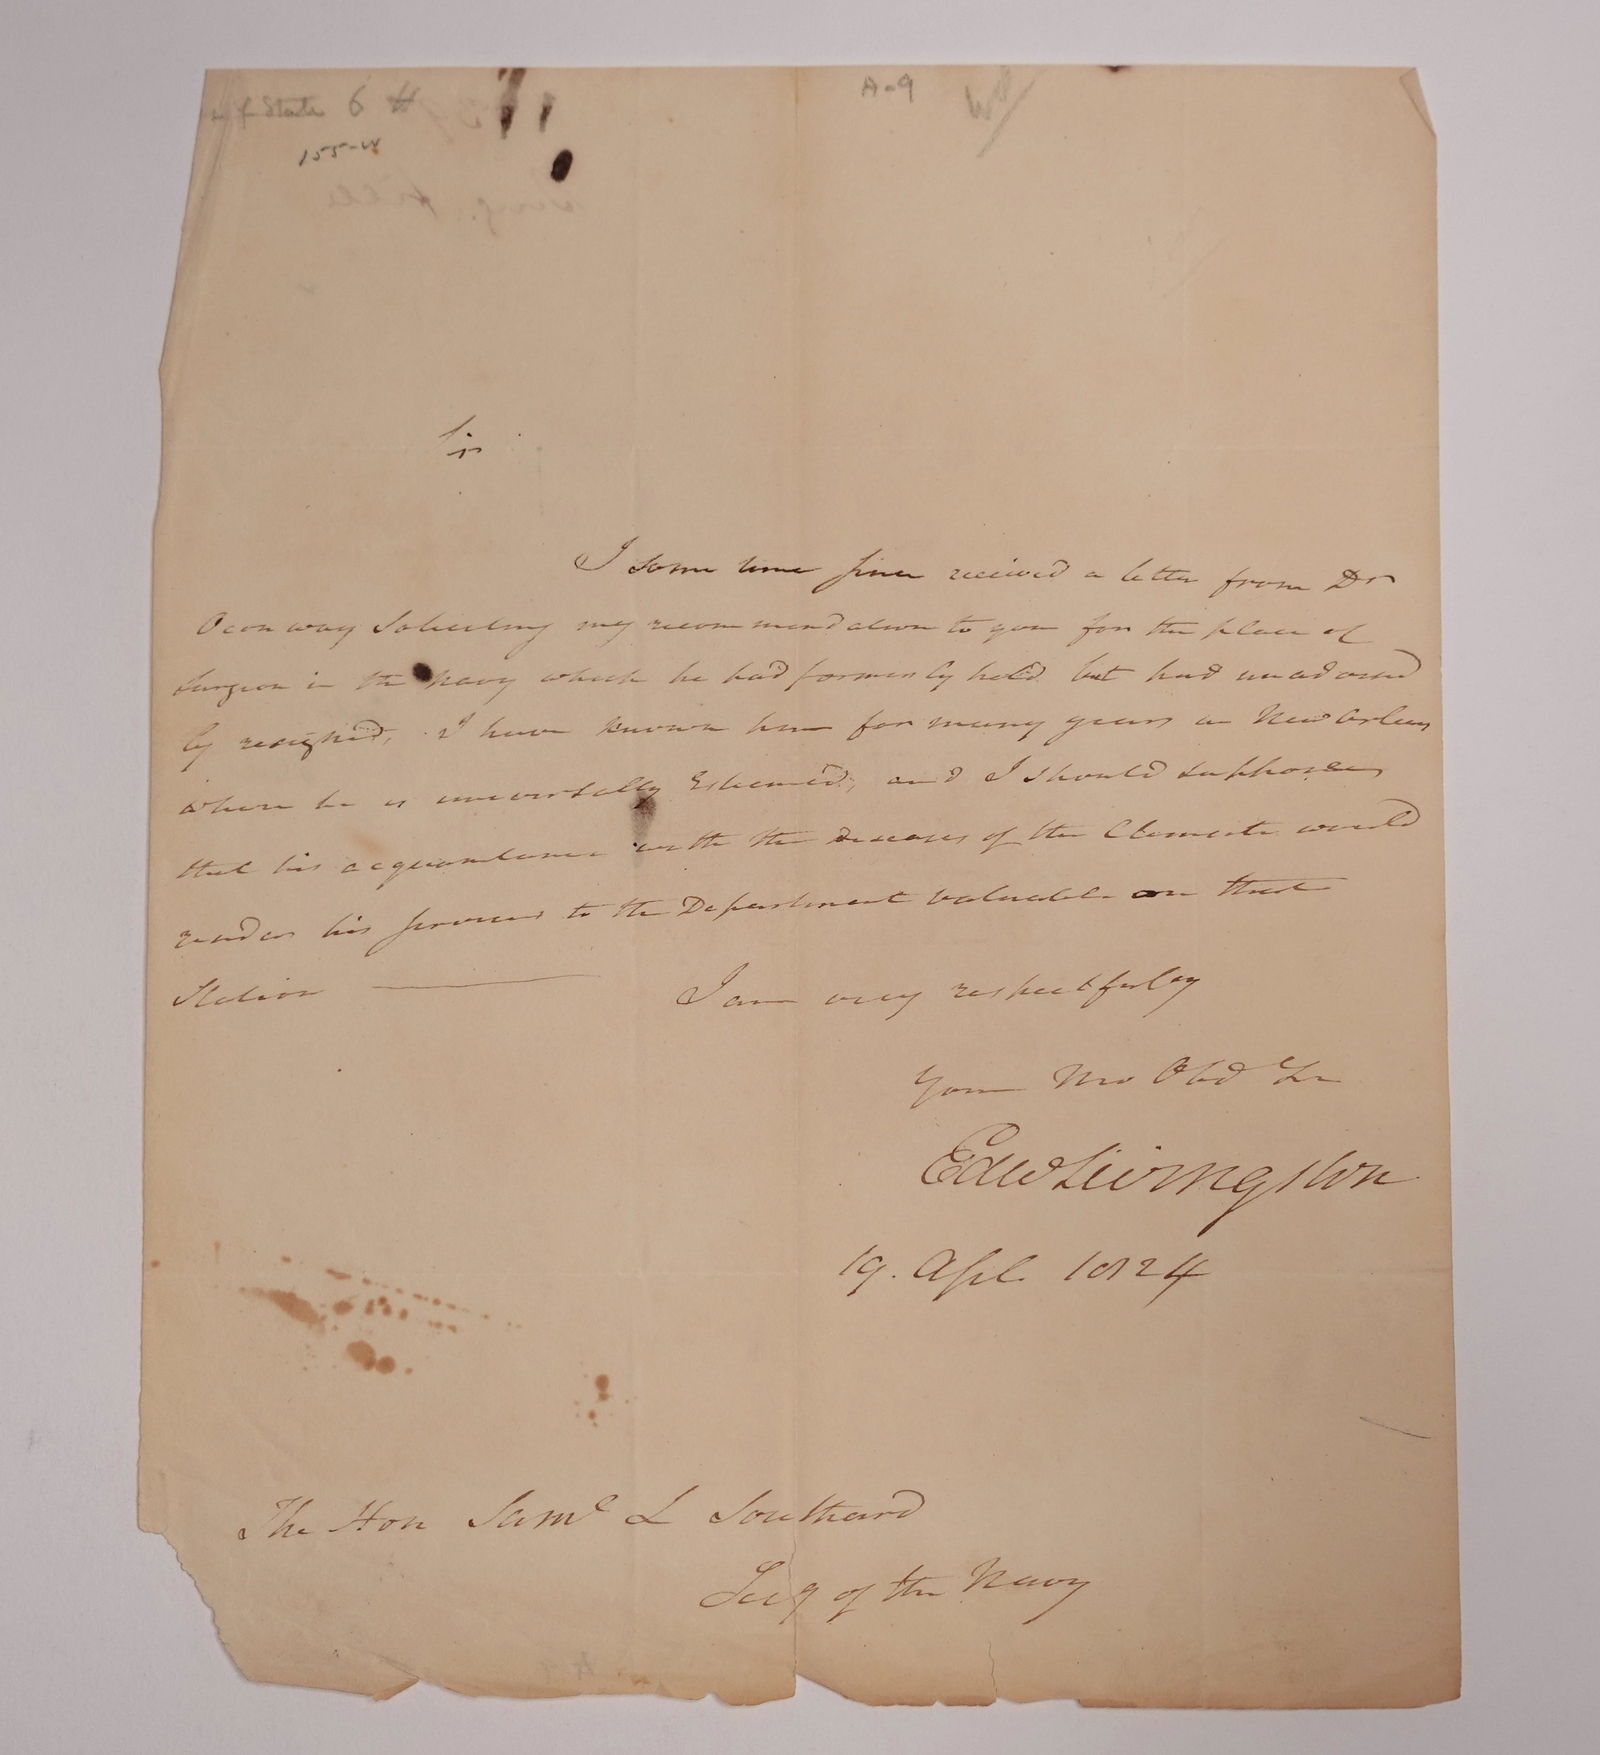 of State 6 #
155-W
A-9
Sir
I some time since received a letter from Dr
Oconway Soliciting my recommendation to you for the place of
Surgeon in the Navy which he had formerly held but had unadvised
ly resigned, I have known him for many years in New Orleans
where he is universally Esteemed, and I should suppose
that his acquaintance with the Diseases of the Climate would
render his services to the Department valuable on that
Station
I am very respectfuly
Your Mo Obd Sr
Edw Livingston
19. Apl. 1824
The Hon Saml L Southard
Secy of the Navy